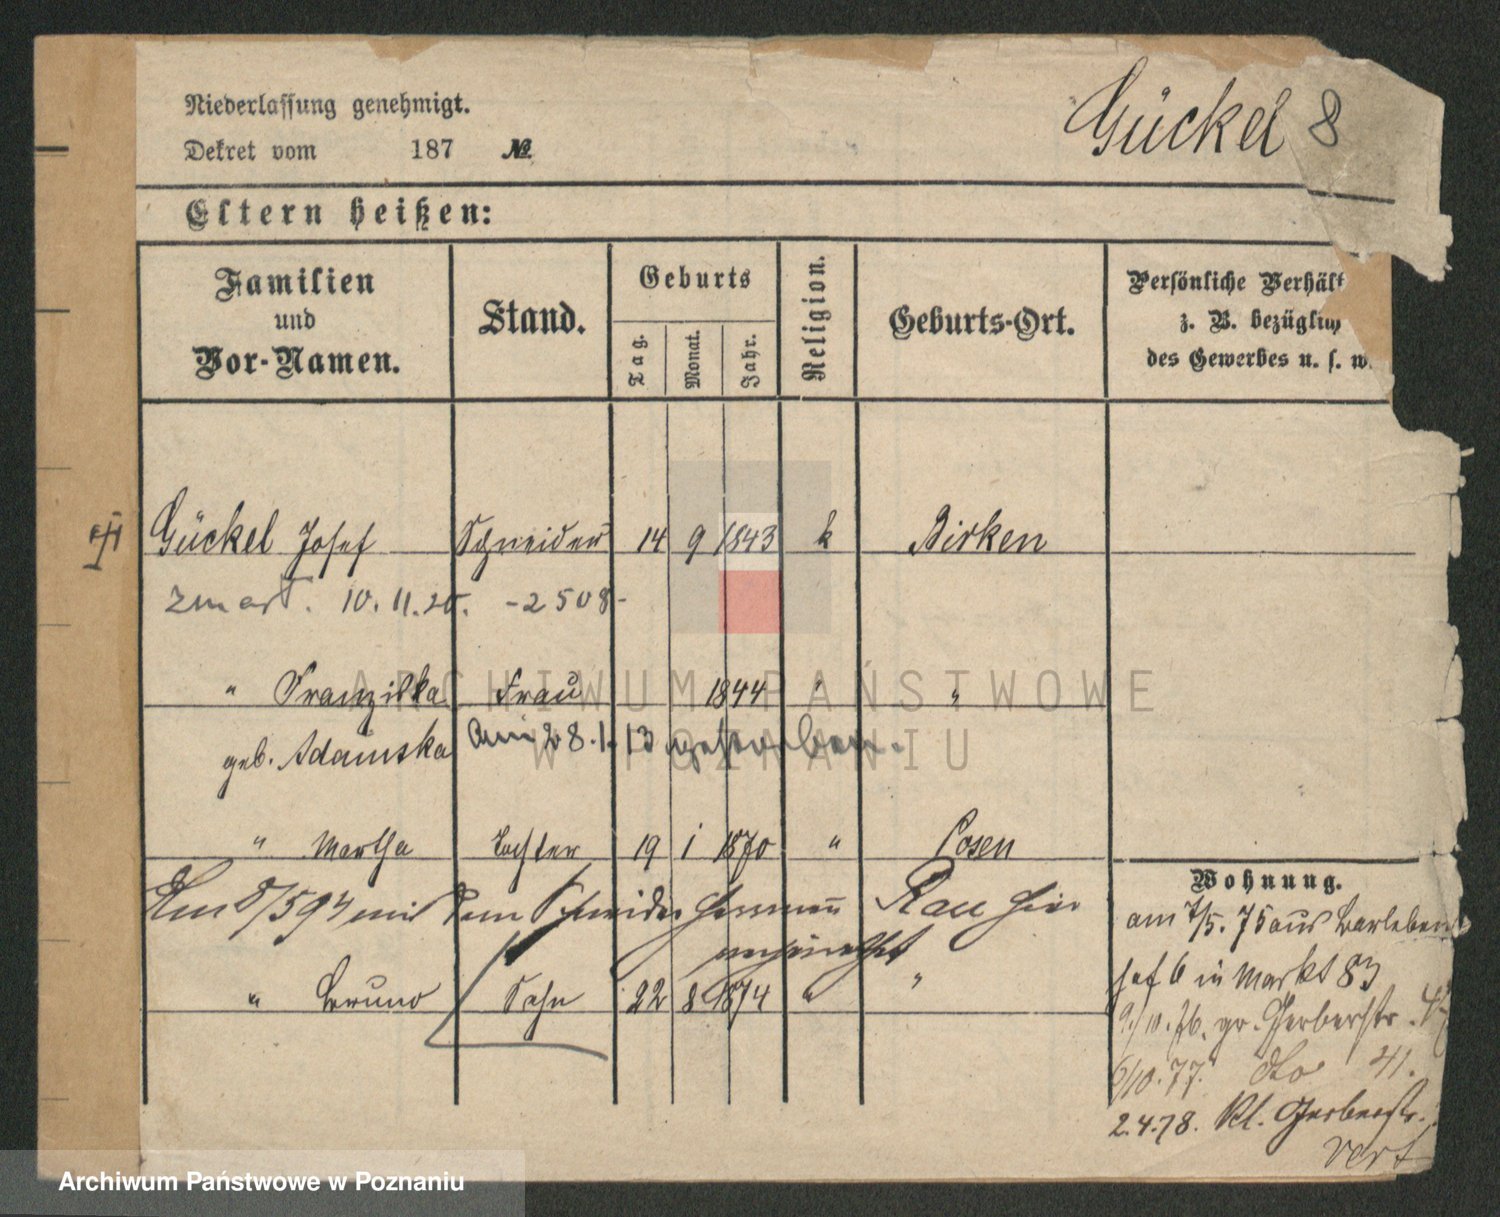 Niederlassung genehmigt.
Dekret vom 187 №
Gückel 8
Eltern heißen:
Familien und Vor-Namen.
Stand.
Geburts
Tag.
Monat.
Jahr.
Religion.
Geburts-Ort.
Persönliche Verhält
z. B. bezüglich
des Gewerbes u. s. w.
Gückel Josef Schneider 14 9 1843 k Birken
zmarł. 10. 11. 20. -2508-
" Franziska Frau 1844 " "
geb. Adamska am 28.1.13 gestorben.
" Martha Tochter 19 1 1870 " Posen
Am 8/5 94 mit dem Schneider Hermann Rau hier
" Bruno Sohn 22 8 1874 " "
Wohnung.
am 7/5. 75 aus
6 in Markt 83
9/10. 76. gr. Gerberstr.
6/10. 77. dto 41.
2.4.78. Kl. Gerberstr.
vert
ARCHIWUM PAŃSTWOWE
W POZNANIU
Archiwum Państwowe w Poznaniu